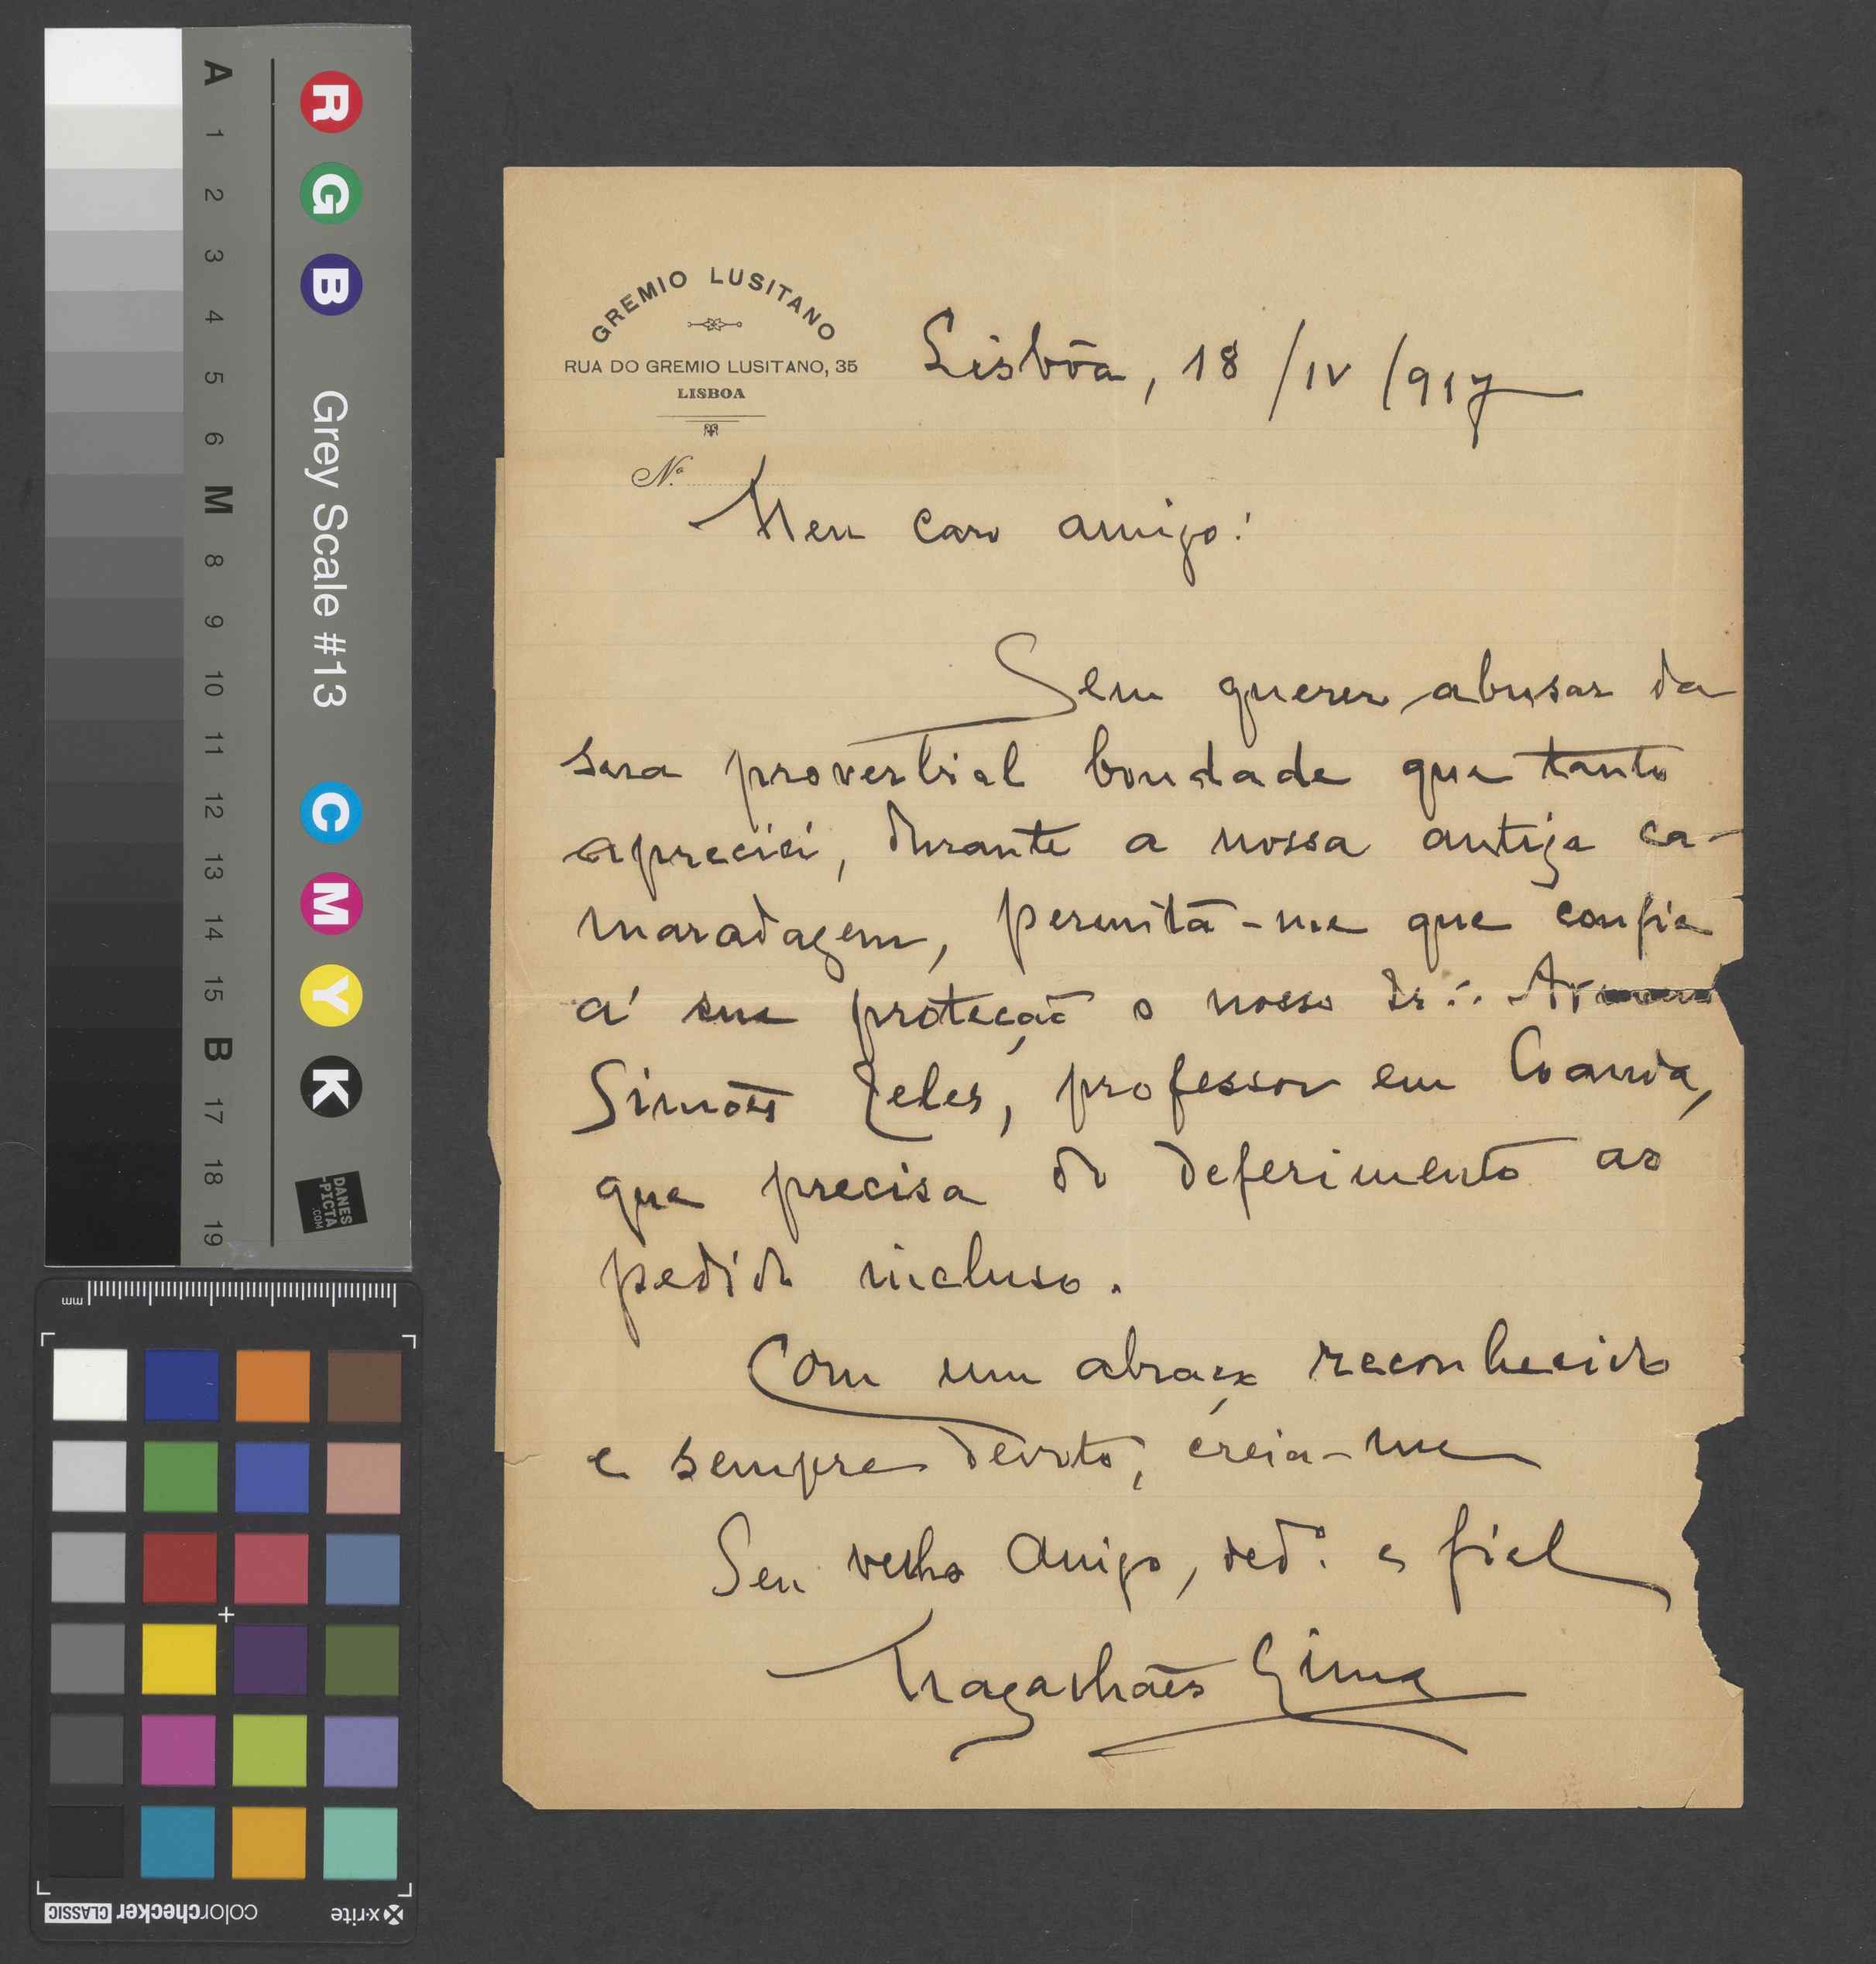 GREMIO LUSITANO
RUA DO GREMIO LUSITANO, 35
LISBOA
Nº
Lisbôa, 18/IV/917
Meu caro amigo:
Sem querer abusar da
sua proverbial bondade que tanto
apreciei, durante a nossa antiga ca-
maradagem, permita-me que confie
á sua proteção o nosso Ir∴
Simões Teles, professor em Loanda,
que precisa do deferimento ao
pedido incluso.
Com um abraço reconhecido
e sempre devoto, creia-me
Seu velho amigo, ded.º e fiel
Magalhães Lima
A
1
2
3
4
5
6
M
8
9
10
11
12
13
14
15
B
17
18
19
R G B
Grey Scale #13
C M Y K
DANES
-PICTA
.COM
mm
x-rite
colorchecker CLASSIC